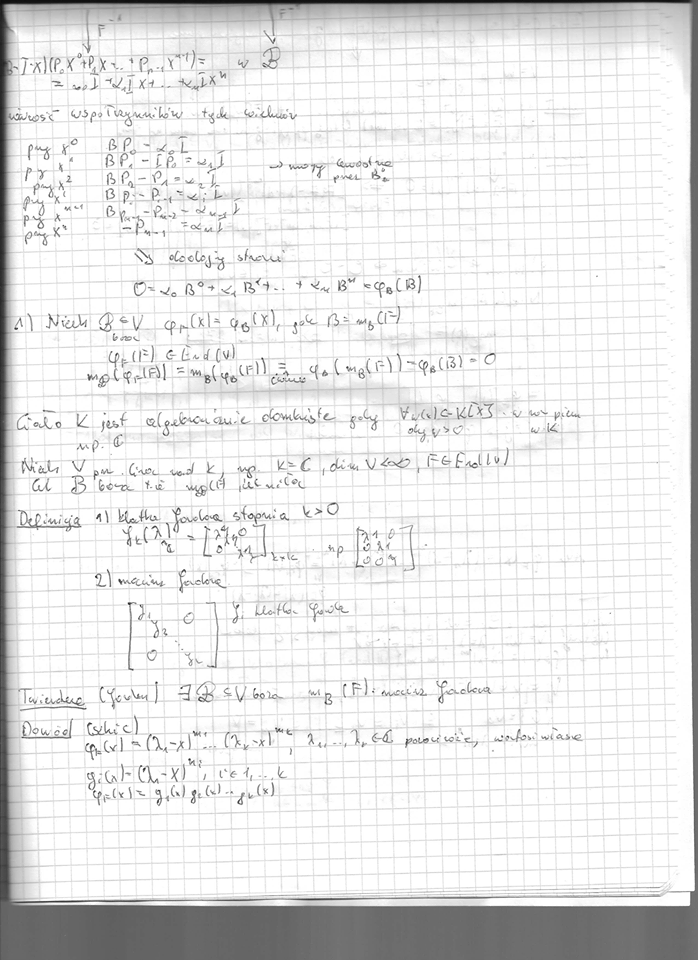 F⁻¹ F⁻¹
B-I·X)(P₀X⁰+P₁X+...+Pₙ₋₁Xⁿ⁻¹)= w B
= α₀I+α₁IX+...+αₙIXⁿ
równość współczynników tych
przy X⁰ BP₀ = α₀I
przy X¹ BP₁ - IP₀ = α₁I → mogę
przy X² BP₂ - P₁ = α₂I przez
przy Xⁱ BPᵢ - Pᵢ₋₁ = αᵢI
przy Xⁿ⁻¹ BPₙ₋₁ - Pₙ₋₂ = αₙ₋₁I
przy Xⁿ -Pₙ₋₁ = αₙI
dodajemy stronami
0 = α₀B⁰ + α₁B¹ + ... + αₙBⁿ = φ_B(B)
1) Niech B ⊆ V φ_F(X) = φ_B(X), gdzie B = m_B(F)
baza
φ_F(F) ∈ End(V)
m_B(φ_F(F)) = m_B(φ_B(F)) = φ_B(m_B(F)) = φ_B(B) = 0
Ciało K jest algebraicznie domknięte gdy ∀w(x)∈K[X] w ma pierw
np. C deg w>0 w K
Niech V prz. lin. nad K, np. K=C, dim V<∞, F∈End(V)
Cel B baza że m_B(F)
Definicja 1) klatka Jordana stopnia k>0
J_k(λ) = [λ 1 0 λ 1 0 λ]k×k np [λ 1 0
0 λ 1
0 0 λ]
2) macierz Jordana
[J₁ 0 Jᵢ klatka Jordana
J₂
0 J_r]
Twierdzenie (Jordan) ∃ B ⊆ V baza m_B(F) - macierz Jordana
Dowód (szkic)
φ_F(x) = (λ₁-x)^m₁ ... (λ_k-x)^m_k, λ₁,...,λ_k ∈ C parami różne, wartości własne
gᵢ(x) = (λᵢ-x)^mᵢ, i∈1,...,k
φ_F(x) = g₁(x) g₂(x) ... g_k(x)